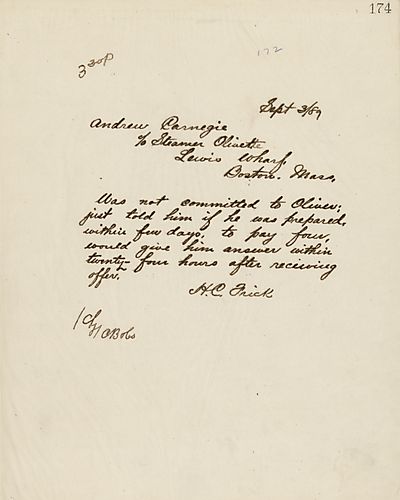 174
172
3 30P
Sept 3/89
Andrew Carnegie
c/o Steamer Olivette
Lewis Wharf,
Boston. Mass,
Was not committed to Oliver;
just told him if he was prepared,
within few days, to pay four,
would give him answer within
twenty-four hours after receiving
offer.
H.C. Frick